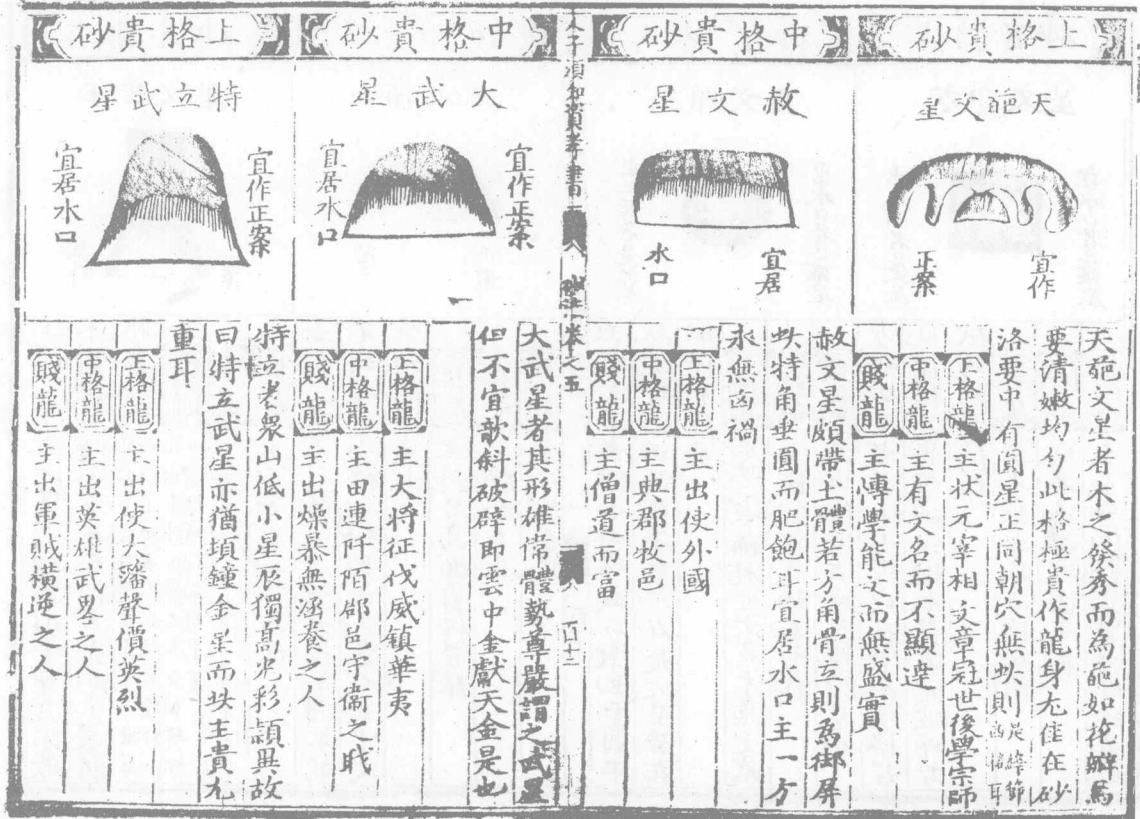 上格貴砂
天葩文星
宜作
正案
天葩文星者木之發秀而為葩如花瓣焉
要清嫩均勻此格極貴作龍身尤佳在砂
洛要中有圓星正同朝穴無蚨則
上格龍 主狀元宰相文章冠世後學宗師
中格龍 主有文名而不顯達
賤龍 主博學能文而無盛實
中格貴砂
赦文星
宜居
水口
赦文星頗帶土體若方角骨立則為御屏
蚨特角垂圓而肥飽耳宜居水口主一方
永無凶禍
上格龍 主出使外國
中格龍 主典郡牧邑
賤龍 主僧道而富
人子須知資孝書
砂法
卷之五
中格貴砂
大武星
宜作正案
宜居水口
大武星者其形雄偉體勢尊嚴謂之武星
但不宜欹斜破碎即雲中金獻天金是也
上格龍 主大將征伐威鎮華夷
中格龍 主田連阡陌郡邑守衞之職
賤龍 主出燥暴無涵養之人
上格貴砂
特立武星
宜作正案
宜居水口
特立者衆山低小星辰獨高光彩頴異故
曰特立武星亦猶頓鐘金星而蚨主貴尤
重耳
上格龍 主出使大藩聲價英烈
中格龍 主出英雄武畧之人
賤龍 主出軍賊橫逆之人